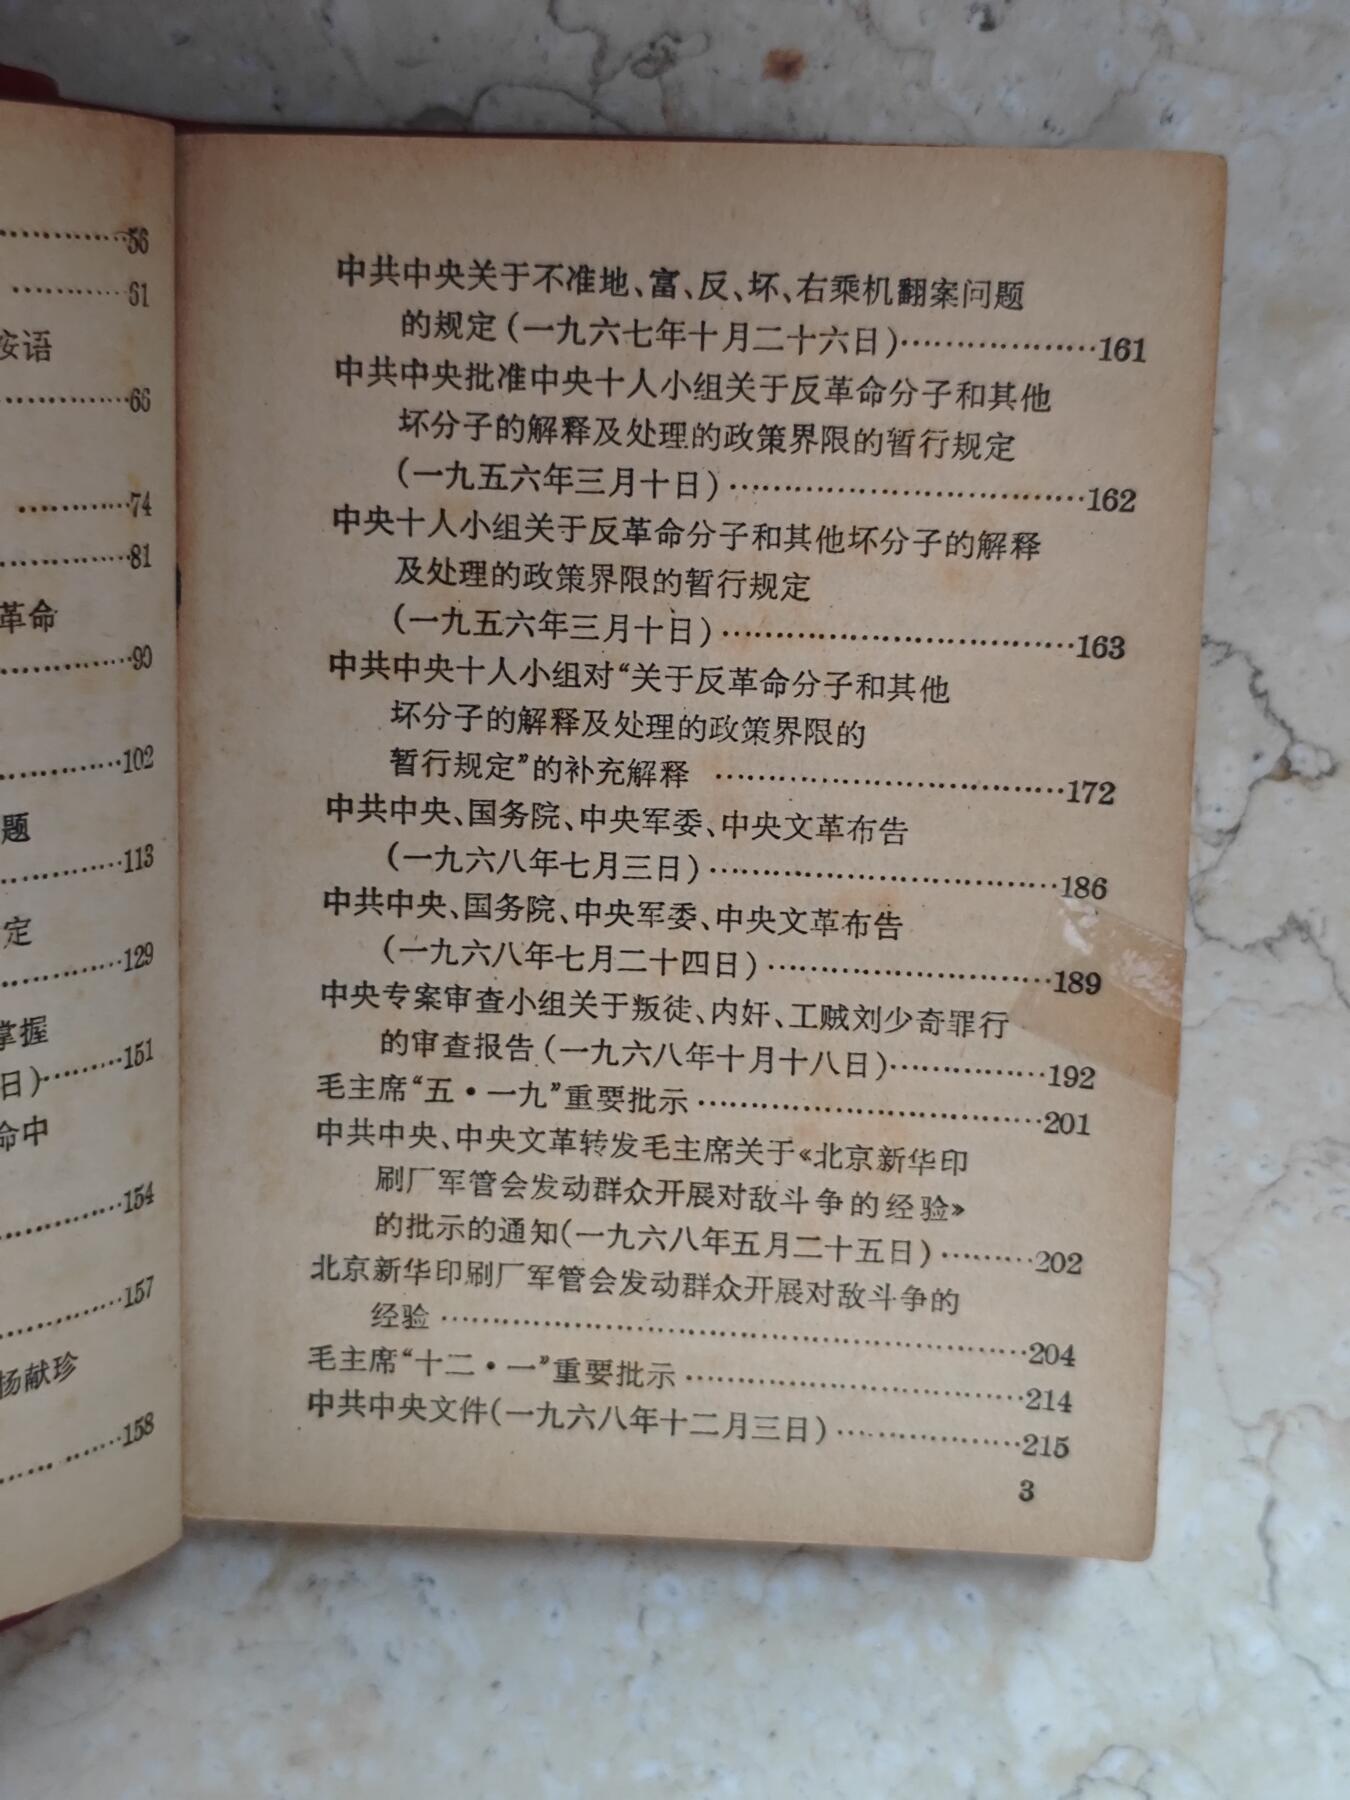 56
61
按语
66
74
81
革命
90
102
题
113
定
129
掌握
日)………151
命中
154
157
杨献珍
158
中共中央关于不准地、富、反、坏、右乘机翻案问题
的规定(一九六七年十月二十六日)………………161
中共中央批准中央十人小组关于反革命分子和其他
坏分子的解释及处理的政策界限的暂行规定
(一九五六年三月十日)………………………………162
中央十人小组关于反革命分子和其他坏分子的解释
及处理的政策界限的暂行规定
(一九五六年三月十日)………………………………163
中共中央十人小组对“关于反革命分子和其他
坏分子的解释及处理的政策界限的
暂行规定”的补充解释 ………………………………172
中共中央、国务院、中央军委、中央文革布告
(一九六八年七月三日)………………………………186
中共中央、国务院、中央军委、中央文革布告
(一九六八年七月二十四日)…………………………189
中央专案审查小组关于叛徒、内奸、工贼刘少奇罪行
的审查报告(一九六八年十月十八日)……………192
毛主席“五·一九”重要批示………………………………201
中共中央、中央文革转发毛主席关于《北京新华印
刷厂军管会发动群众开展对敌斗争的经验》
的批示的通知(一九六八年五月二十五日)………202
北京新华印刷厂军管会发动群众开展对敌斗争的
经验……………………………………………………204
毛主席“十二·一”重要批示………………………………214
中共中央文件(一九六八年十二月三日)………………215
3